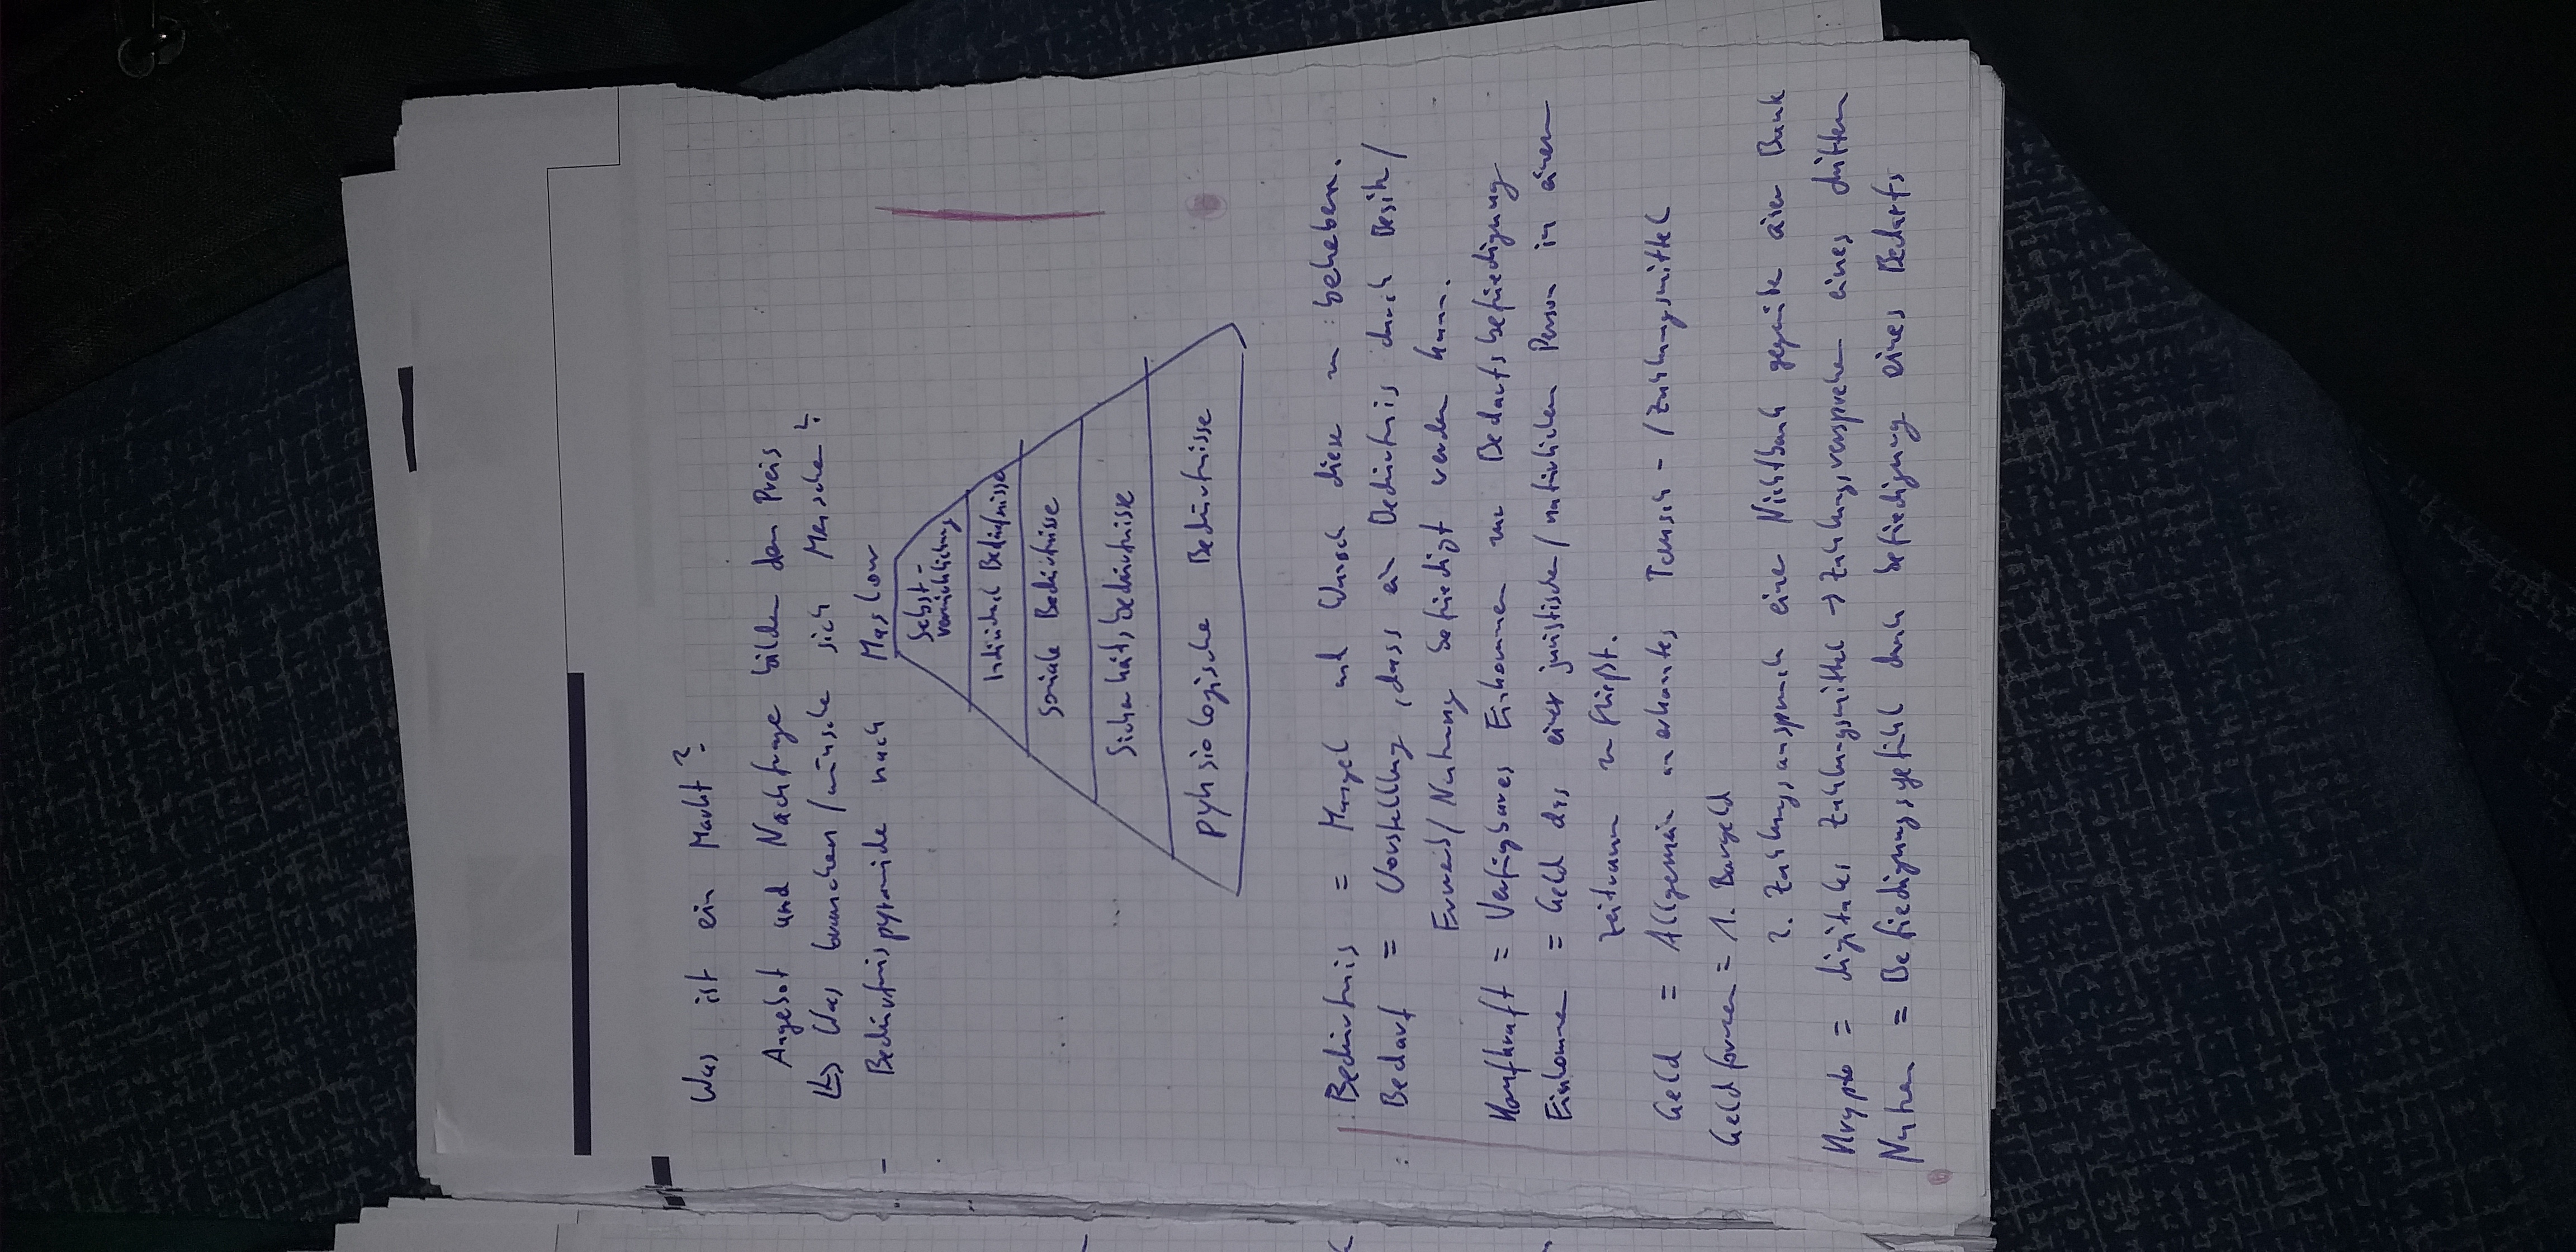 Was ist ein Markt?
Angebot und Nachfrage bilden den Preis
↳ Was brauchen/wünsche sich Menschen?
- Bedürfnispyramide nach Maslow
Selbst-
verwirklichung
Individual Bedürfnisse
Soziale Bedürfnisse
Sicherheitsbedürfnisse
pyhsiologische Bedürfnisse
Bedürfnis = Mangel und Wunsch diese zu beheben.
Bedarf = Vorstellung, dass ein Bedürfnis durch Besitz/
Erwerb/Nutzung befriedigt werden kann.
Kaufkraft = Verfügbares Einkommen zur Bedarfsbefriedigung
Einkommen = Geld das einer juristischen/natürlichen Person in einem
Zeitraum zu fließt.
Geld = Allgemein anerkanntes Tausch-/Zahlungsmittel
Geldformen = 1. Bargeld
2. Zahlungsanspruch einer Nichtbank gegenüber einer Bank
Krypto = digitales Zahlungsmittel → Zahlungsversprechen eines dritten
Nutzen = Befiedigungsgefühl durch befiedigung eines Bedarfs